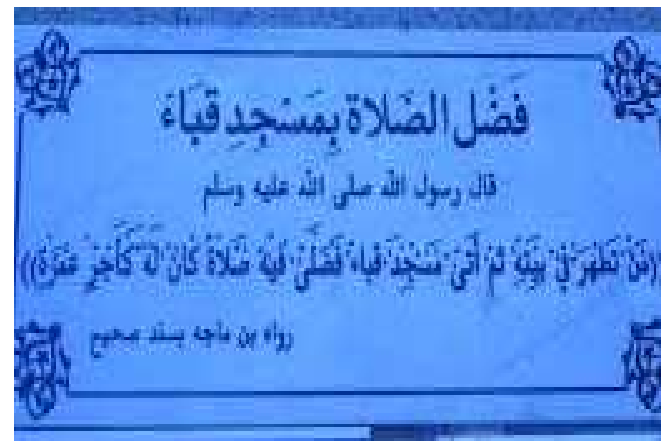 فَضْل الصَّلاة بِمَسْجِدِ قُبَاءَ
قال رسول الله صلى الله عليه وسلم
((مَنْ تَطَهَّرَ فِي بَيْتِهِ ثُمَّ أَتَىْ مَسْجِدَ قُبَاءَ فَصَلَّىْ فِيْهِ صَلَاةً كَانَ لَهُ كَأَجْرِ عُمْرَةٍ))
رواه بن ماجه بسند صحيح